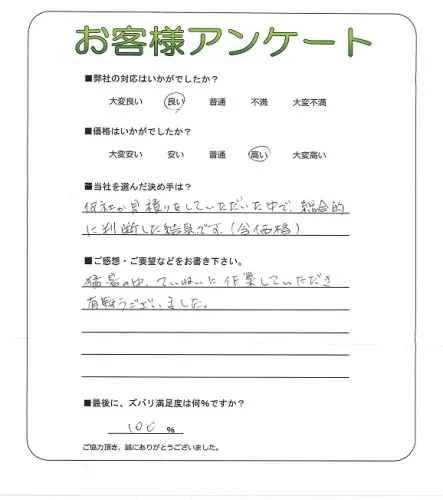 お客様アンケート
■弊社の対応はいかがでしたか？
大変良い 良い 普通 不満 大変不満
■価格はいかがでしたか？
大変安い 安い 普通 高い 大変高い
■当社を選んだ決め手は？
何社か見積りをしていただいた中で、総合的
に判断した結果です。(含価格)
■ご感想・ご要望などをお書き下さい。
猛暑の中、ていねいに作業していただき
有難うございました。
■最後に、ズバリ満足度は何%ですか？
100 %
ご協力頂き、誠にありがとうございました。